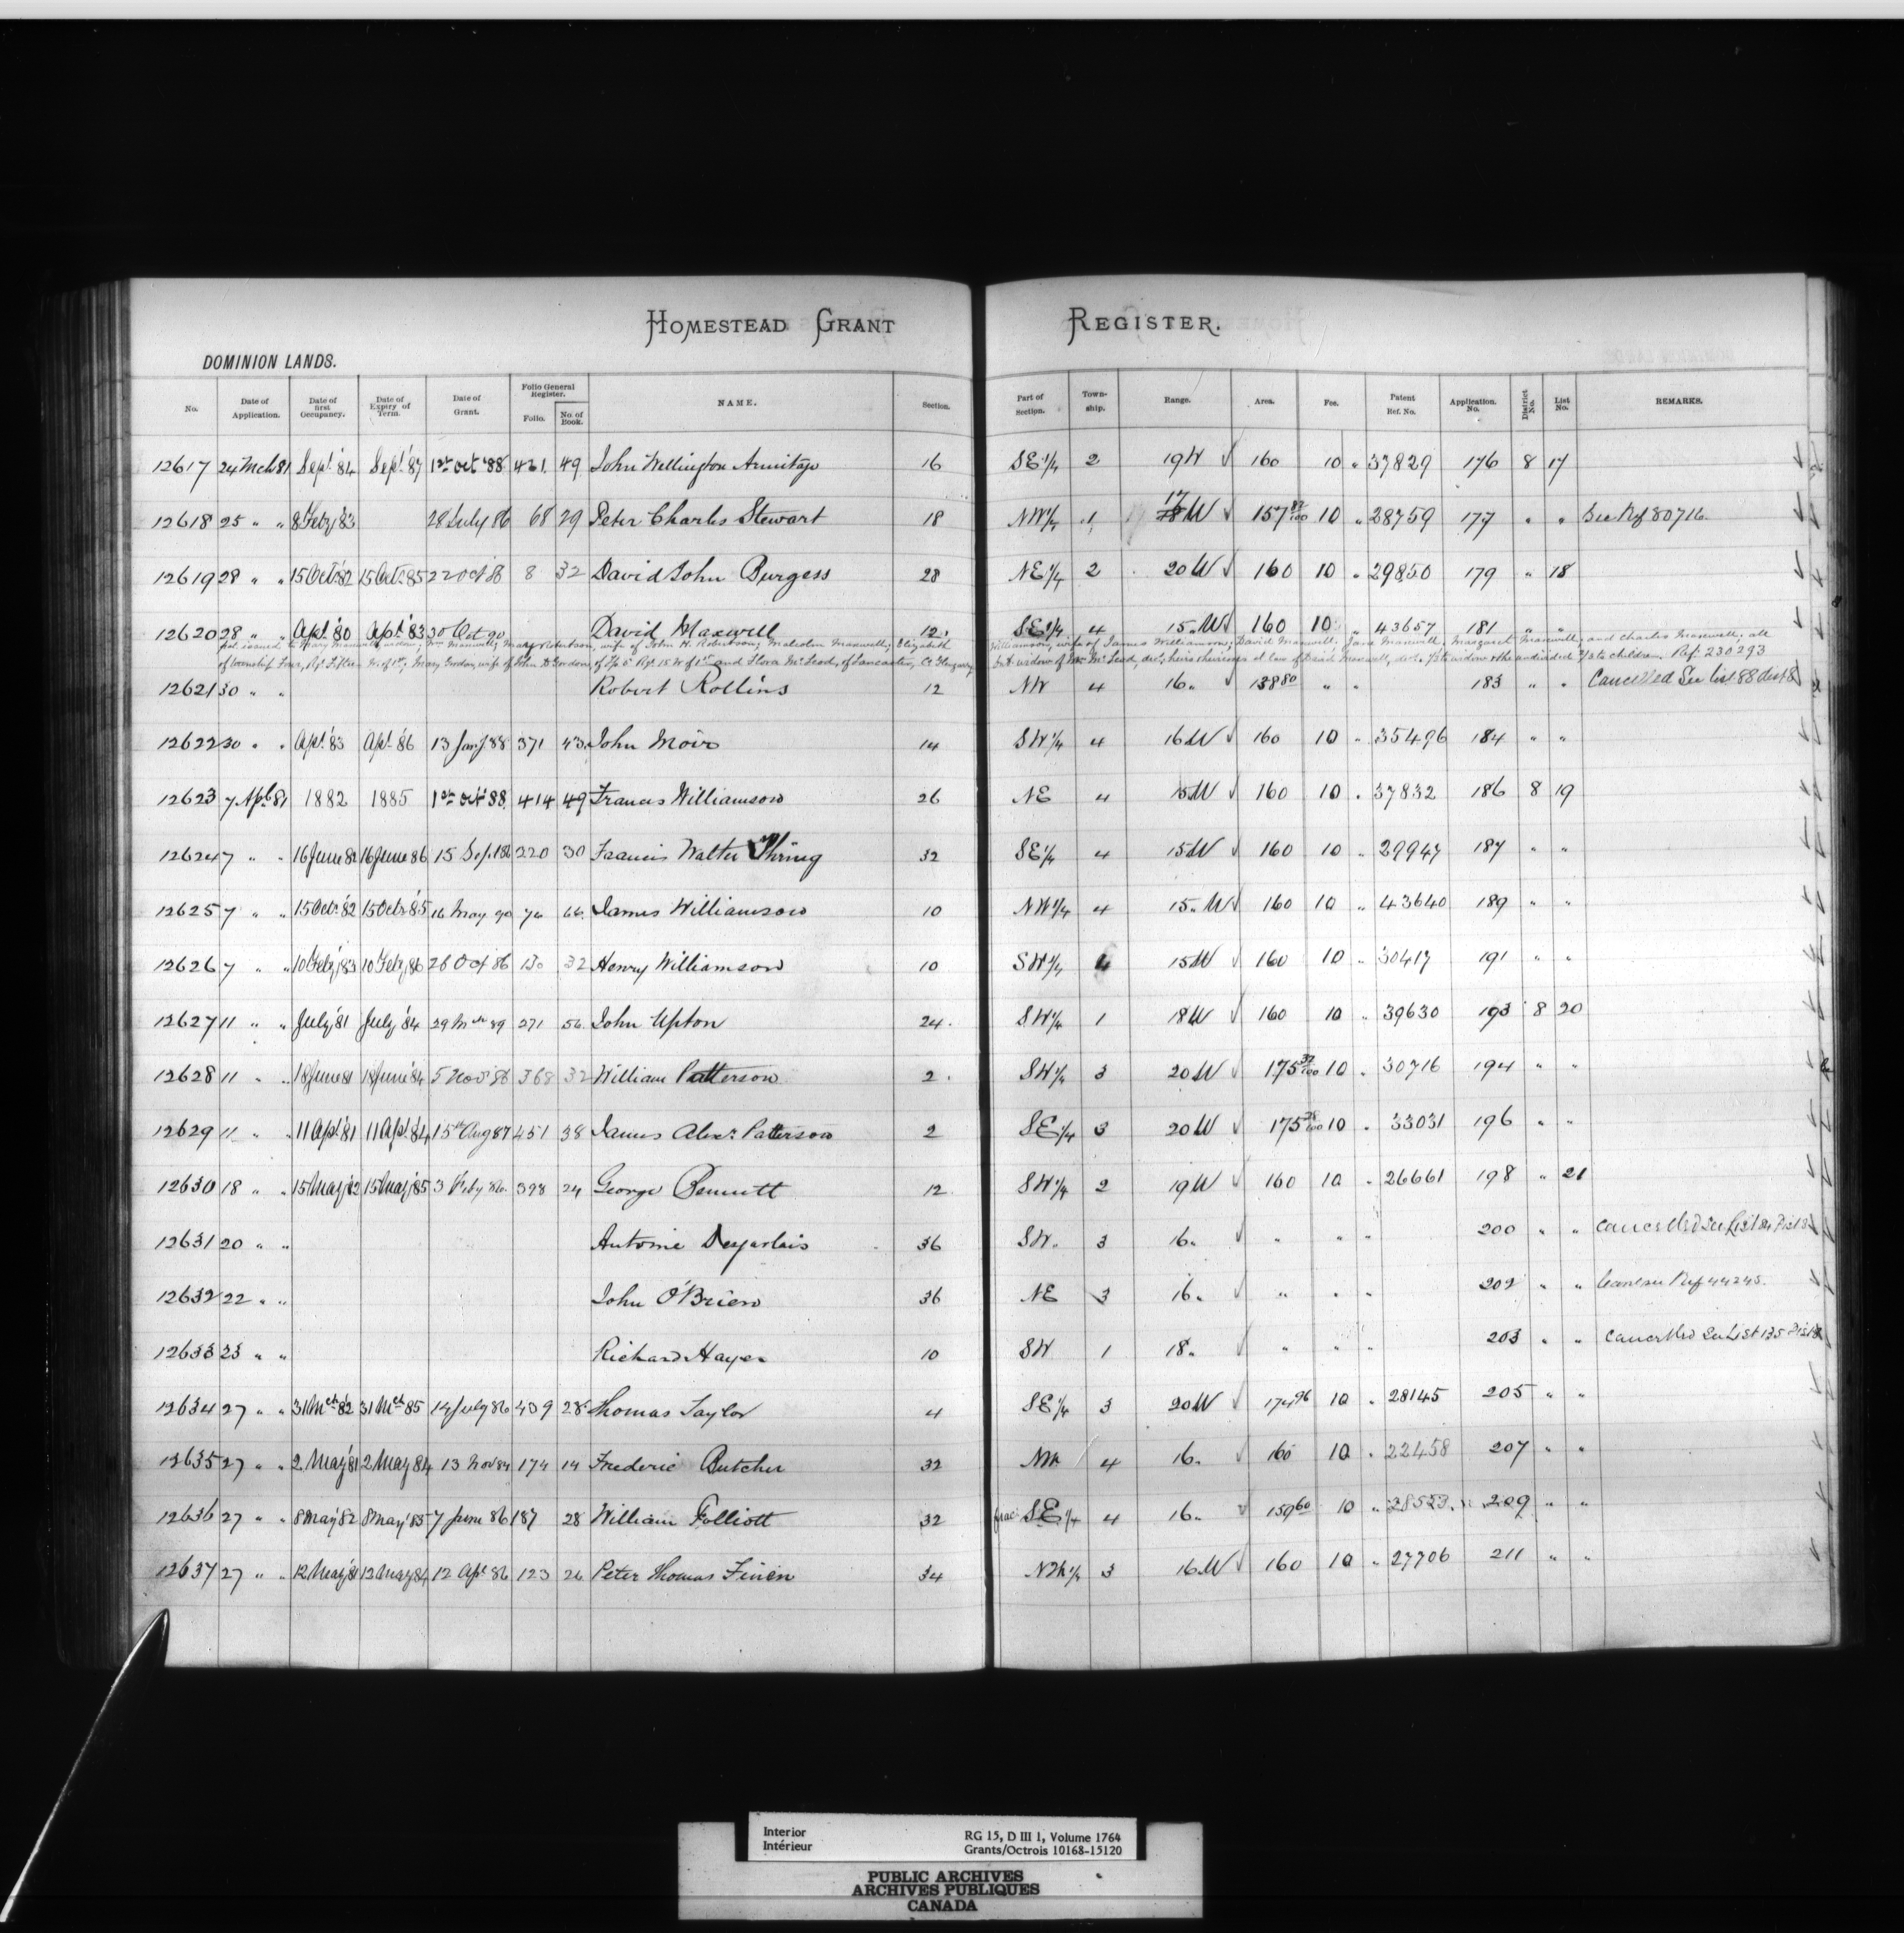 HOMESTEAD GRANT REGISTER.
DOMINION LANDS.
No. Date of Application. Date of first Occupancy. Date of Expiry of Term. Date of Grant. Folio General Register. Folio. No. of Book. NAME. Section. Part of Section. Town-ship. Range. Area. Fee. Patent Ref. No. Application. No. District No. List No. REMARKS.
12617 24 Mch 81 Sept '84 Sept '87 1st Oct '88 421 49 John Wellington Armitage 16 SE 1/4 2 19 W 160 10 " 37829 176 8 17
12618 25 " " 8 Feby '83 28 July 86 68 29 Peter Charles Stewart 18 NW 1/4 1 17 W 157 10 " 28759 177 " " See Ref 80716.
12619 28 " " 15 Oct '82 15 Oct 85 22 Oct 86 8 32 David John Burgess 28 NE 1/4 2 20 W 160 10 " 29850 179 " 18
12620 28 " " Apl '80 Apl '83 30 Oct 90 David Maxwell 12 SE 1/4 4 15 W 160 10 " 43657 181 " "
Pat issued to Mary Maxwell, widow; Wm Maxwell; Mary Robertson, wife of John H. Robertson; Malcolm Maxwell; Elizabeth Williamson, wife of James Williamson; David Maxwell; Jane Maxwell; Margaret Maxwell; and Charles Maxwell; all
of township Four, Rge Fifteen W of 1st; Mary Gordon, wife of John D Gordon of Tp 5 Rge 15 W of 1st and Flora McLeod, of Lancaster, Co Glengarry, Ont widow of McLeod, decd, heirs & heiresses at law of David Maxwell, decd. 1/3 to widow & the undivided 2/3 to children. Ref. 230293
12621 30 " " Robert Rollins 12 NW 4 16 " 138 80 " " 183 " " Cancelled See list 88 dist 8
12622 30 " " Apl '83 Apl '86 13 Jany 88 371 43 John Moir 14 SW 1/4 4 16 W 160 10 " 35496 184 " "
12623 7 Apl 81 1882 1885 1st Oct '88 414 49 Francis Williamson 26 NE 4 15 W 160 10 " 37832 186 8 19
12624 7 " " 16 June 82 16 June 86 15 Sep 86 220 30 Francis Walter Thring 32 SE 1/4 4 15 W 160 10 " 29947 187 " "
12625 7 " " 15 Oct '82 15 Oct '85 16 May 90 74 66 James Williamson 10 NW 1/4 4 15 W 160 10 " 43640 189 " "
12626 7 " " 10 Feby '83 10 Feby 86 26 Oct 86 130 32 Henry Williamson 10 SW 1/4 4 15 W 160 10 " 30417 191 " "
12627 11 " " July '81 July '84 29 Mch 89 271 56 John Upton 24 SW 1/4 1 18 W 160 10 " 39630 193 8 20
12628 11 " " 18 June 81 18 June '84 5 Nov 86 368 32 William Patterson 2 SW 1/4 3 20 W 175 37/100 10 " 30716 194 " "
12629 11 " " 11 Apl '81 11 Apl 84 15th Aug 87 451 38 James Alexr Patterson 2 SE 1/4 3 20 W 175 10 " 33031 196 " "
12630 18 " " 15 May '82 15 May '85 3 Feby 86 398 24 George Bennett 12 SW 1/4 2 19 W 160 10 " 26661 198 " 21
12631 20 " " Antoine Desjarlais 36 SW 3 16 " " " " 200 " " Cancelled See List 84 Dist 8
12632 22 " " John O'Brien 36 NE 3 16 " " " " 202 " " Canc see Ref 44245.
12633 23 " " Richard Hayes 10 SW 1 18 " " " " 203 " " Cancelled See List 135 Dist 8
12634 27 " " 31 Mch '82 31 Mch 85 14 July 86 409 28 Thomas Taylor 4 SE 1/4 3 20 W 174 96 10 " 28145 205 " "
12635 27 " " 2 May '81 2 May 84 13 Nov 84 174 14 Frederic Butcher 32 NW 4 16 " 160 10 " 22458 207 " "
12636 27 " " 8 May '82 8 May '85 7 June 86 187 28 William Folliott 32 frac SE 1/4 4 16 " 159 60 10 " 28523 209 " "
12637 27 " " 12 May 81 12 May 84 12 Apl 86 123 26 Peter Thomas Finen 34 NW 1/4 3 16 W 160 10 " 27706 211 " "
Interior
Intérieur
RG 15, D III 1, Volume 1764
Grants/Octrois 10168-15120
PUBLIC ARCHIVES
ARCHIVES PUBLIQUES
CANADA